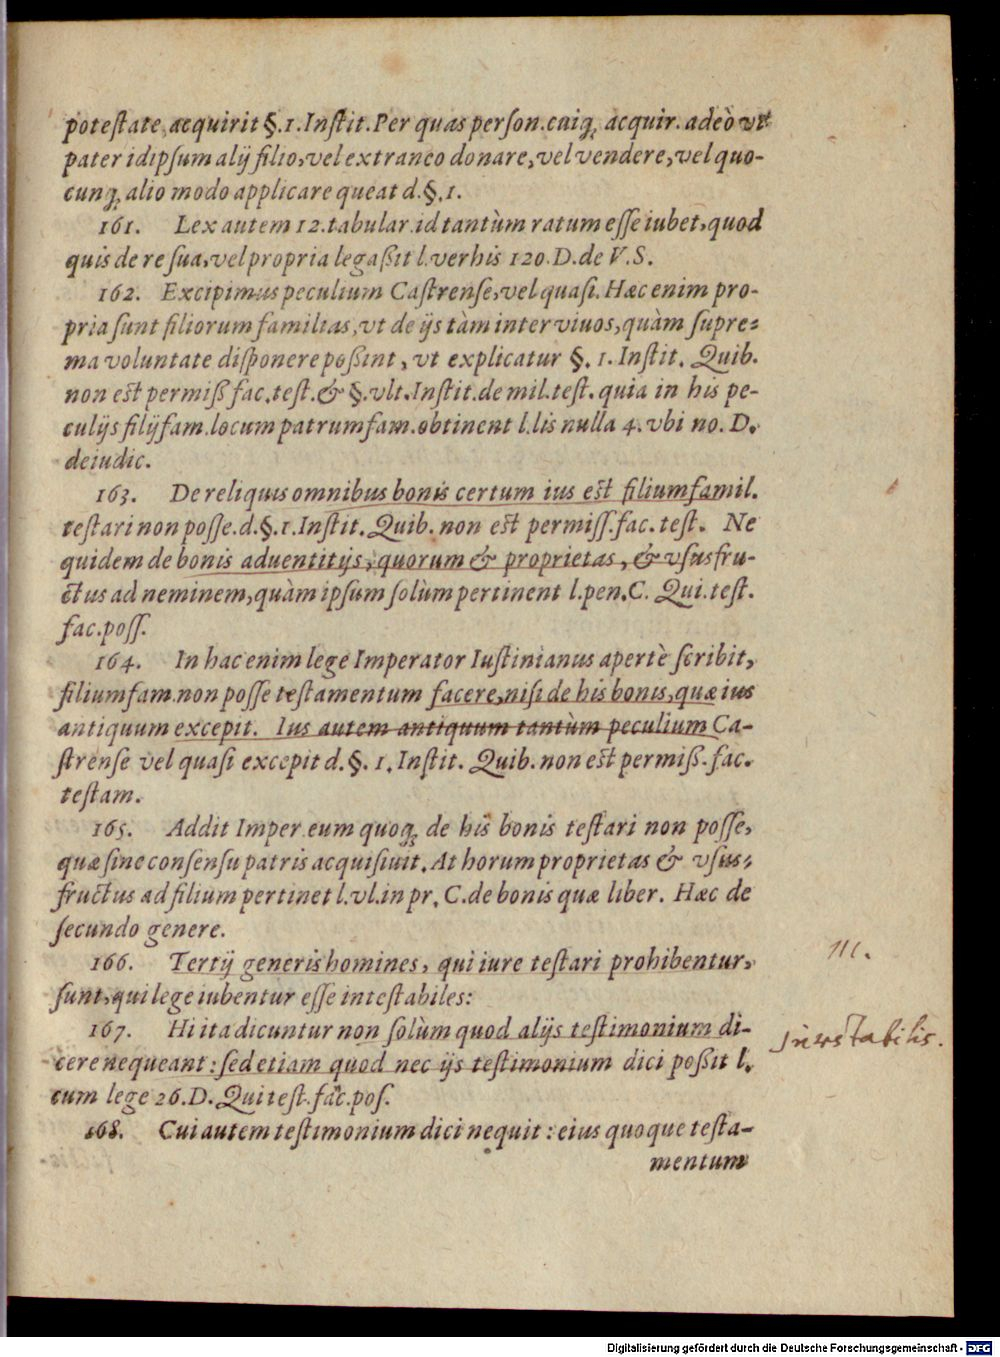 poteſtate acquirit §.1.Inſtit.Per quas perſon.cuiq; acquir. adeò vt
pater idipſum alij filio, vel extraneo donare, vel vendere, vel quo-
cunq; alio modo applicare queat d.§.1.
161. Lex autem 12. tabular. id tantùm ratum eſſe iubet, quod
quis de re ſua, vel propria legaßit l. verbis 120. D. de V. S.
162. Excipimus peculium Caſtrenſe, vel quaſi. Hæc enim pro-
pria ſunt filiorum familias, vt de ijs tàm inter viuos, quàm ſupre-
ma voluntate diſponere poßint, vt explicatur §. 1. Inſtit. Quib.
non eſt permiß fac. teſt. & §. vlt. Inſtit. de mil. teſt. quia in his pe-
culijs filijfam. locum patrumfam. obtinent l. lis nulla 4. vbi no. D.
de iudic.
163. De reliquis omnibus bonis certum ius eſt filiumfamil.
teſtari non poſſe. d. §. 1. Inſtit. Quib. non eſt permiſſ. fac. teſt. Ne
quidem de bonis aduentitijs, quorum & proprietas, & vſusfru-
ctus ad neminem, quàm ipſum ſolùm pertinent l. pen. C. Qui. teſt.
fac. poſſ.
164. In hac enim lege Imperator Iuſtinianus apertè ſcribit,
filiumfam. non poſſe teſtamentum facere, niſi de his bonis, quæ ius
antiquum excepit. Ius autem antiquum tantùm peculium Ca-
ſtrenſe vel quaſi excepit d. §. 1. Inſtit. Quib. non eſt permiß. fac.
teſtam.
165. Addit Imper. eum quoq; de his bonis teſtari non poſſe,
quæ ſine conſenſu patris acquiſiuit. At horum proprietas & vſus-
fructus ad filium pertinet l. vl. in pr. C. de bonis quæ liber. Hæc de
ſecundo genere.
166. Tertij generis homines, qui iure teſtari prohibentur,
ſunt, qui lege iubentur eſſe inteſtabiles:
III.
167. Hi ita dicuntur non ſolùm quod alijs teſtimonium di-
Inteſtabilis.
cere nequeant: ſed etiam quod nec ijs teſtimonium dici poßit l.
cum lege 26. D. Qui teſt. fac. poſ.
168. Cui autem teſtimonium dici nequit: eius quoque teſta-
mentum
Digitalisierung gefördert durch die Deutsche Forschungsgemeinschaft - DFG